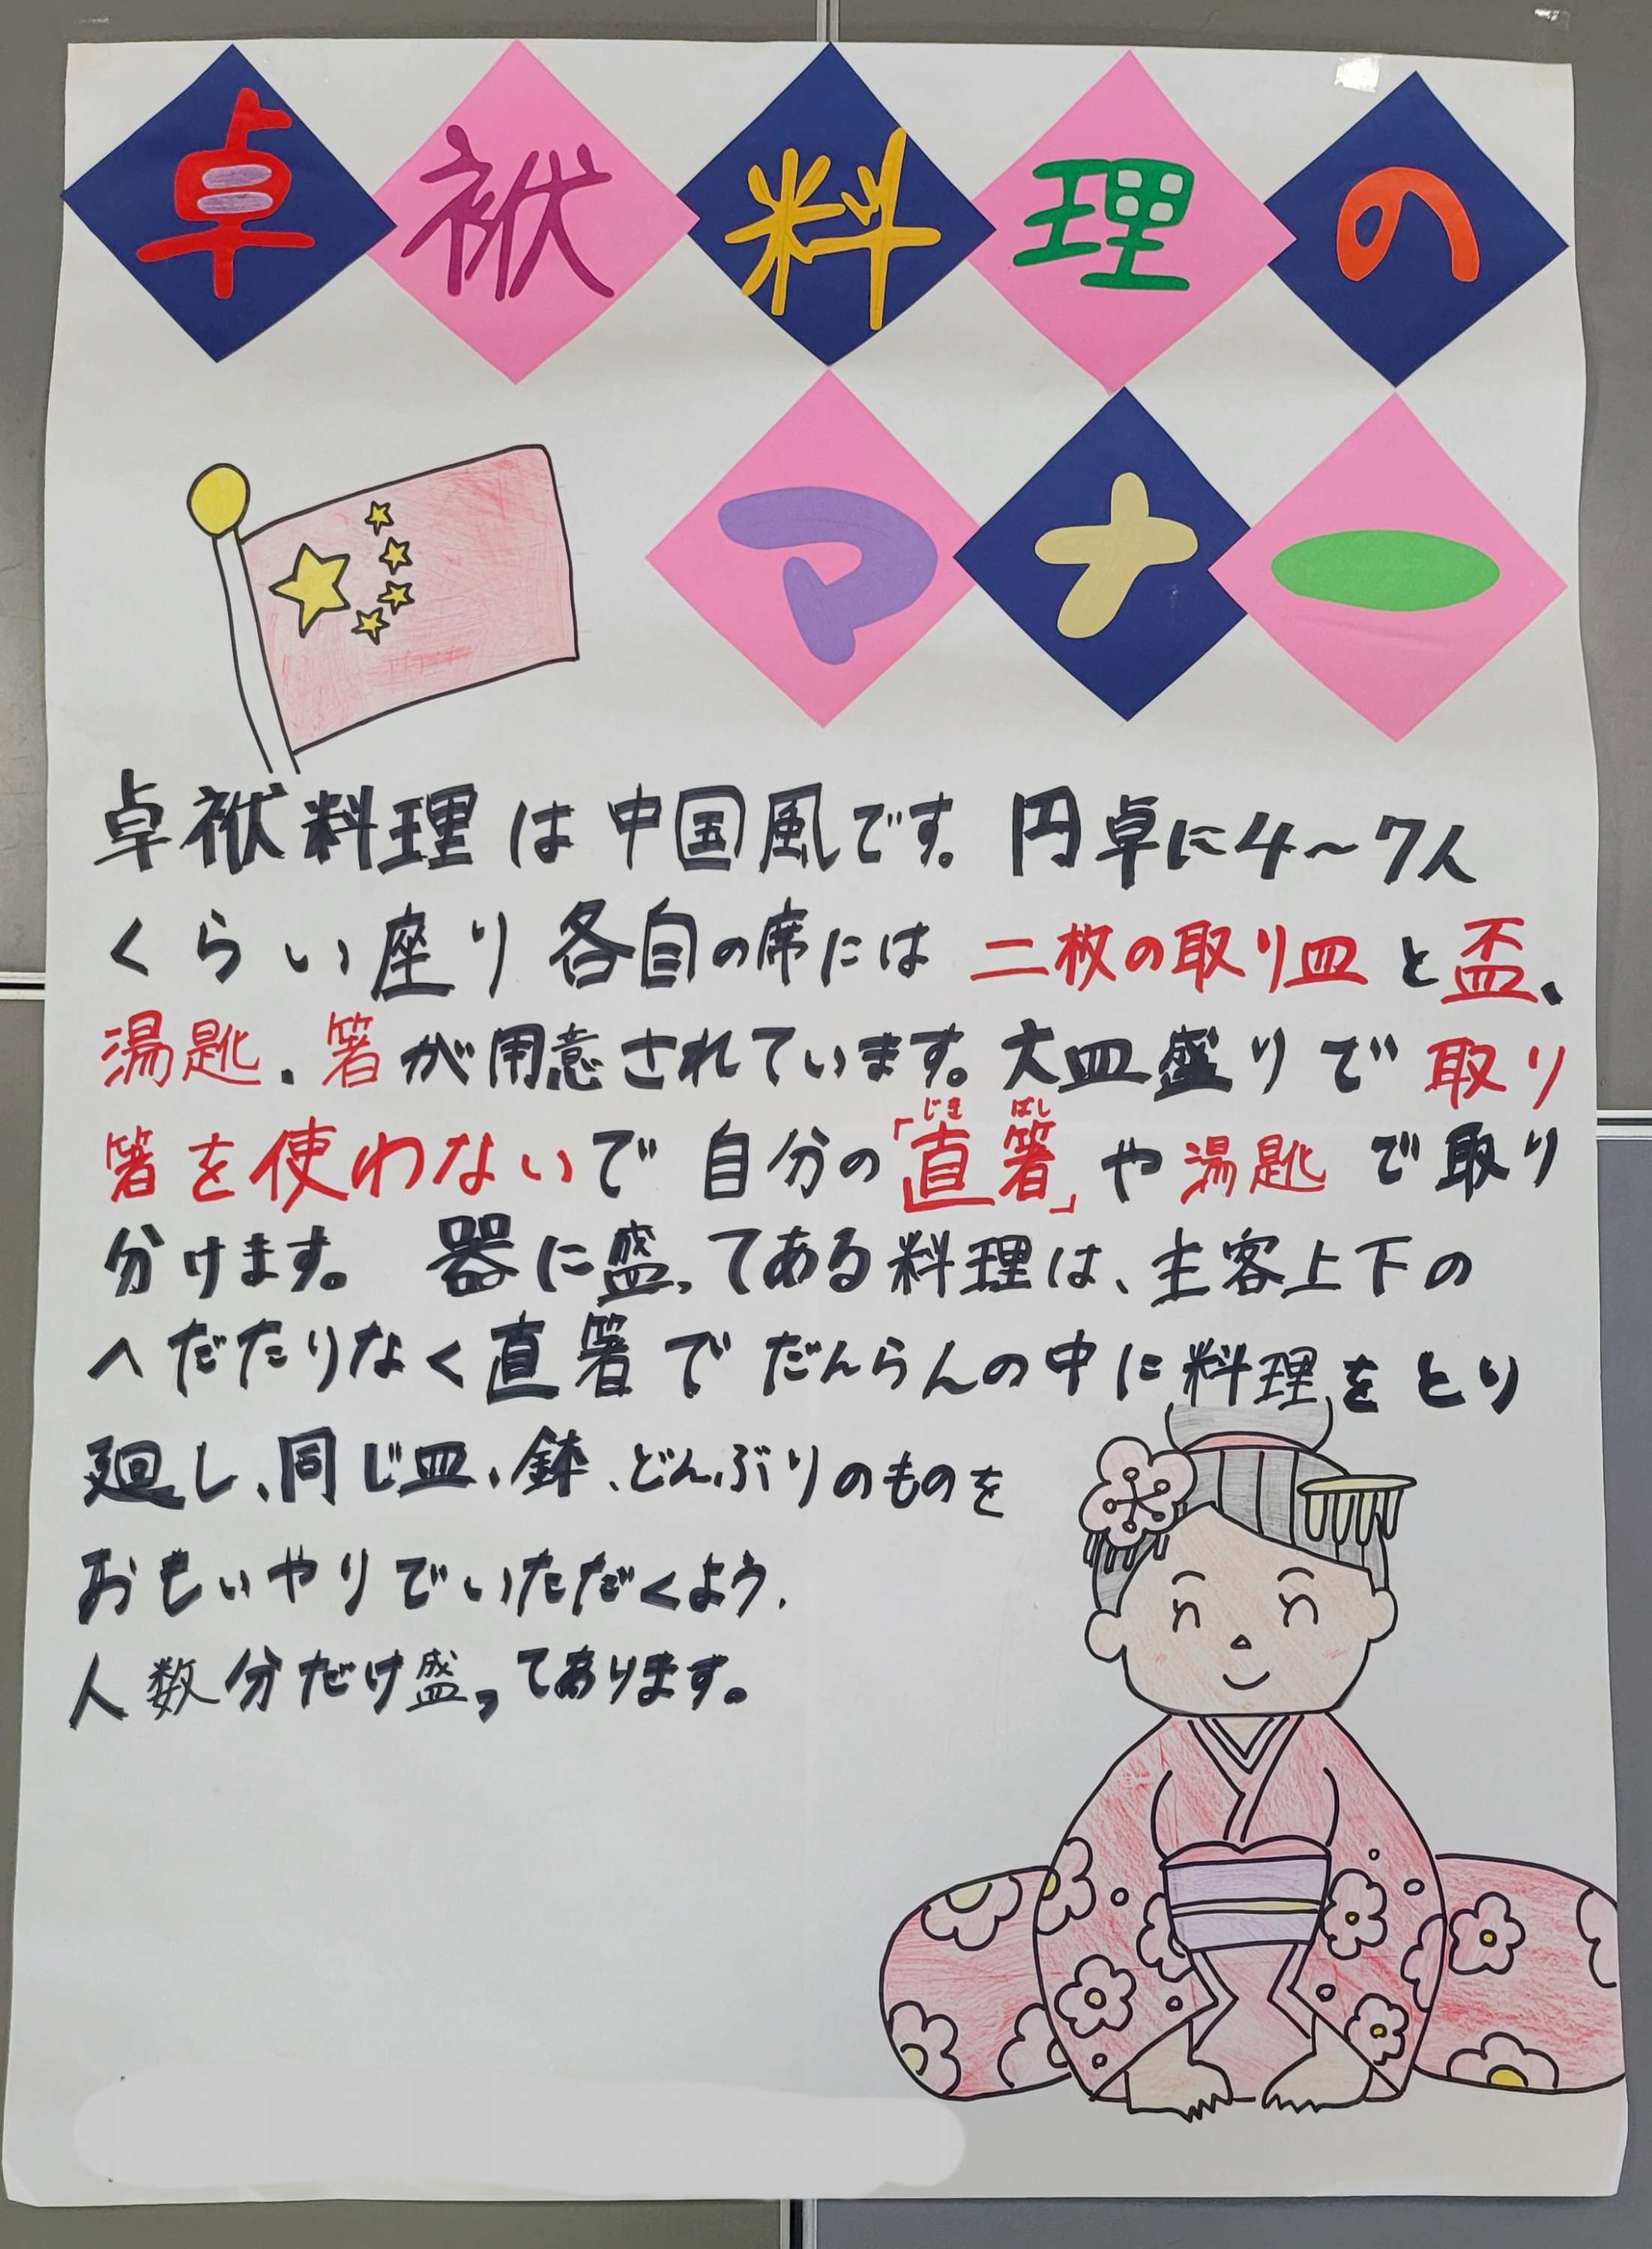 卓袱料理の
マナー
卓袱料理は中国風です。円卓に4～7人
くらい座り各自の席には二枚の取り皿と盃、
湯匙、箸が用意されています。大皿盛りで取り
箸を使わないで自分の「直箸」や湯匙で取り
じき ばし
分けます。 器に盛ってある料理は、主客上下の
へだたりなく直箸でだんらんの中に料理をとり
廻し、同じ皿、鉢、どんぶりのものを
おもいやりでいただくよう、
人数分だけ盛ってあります。